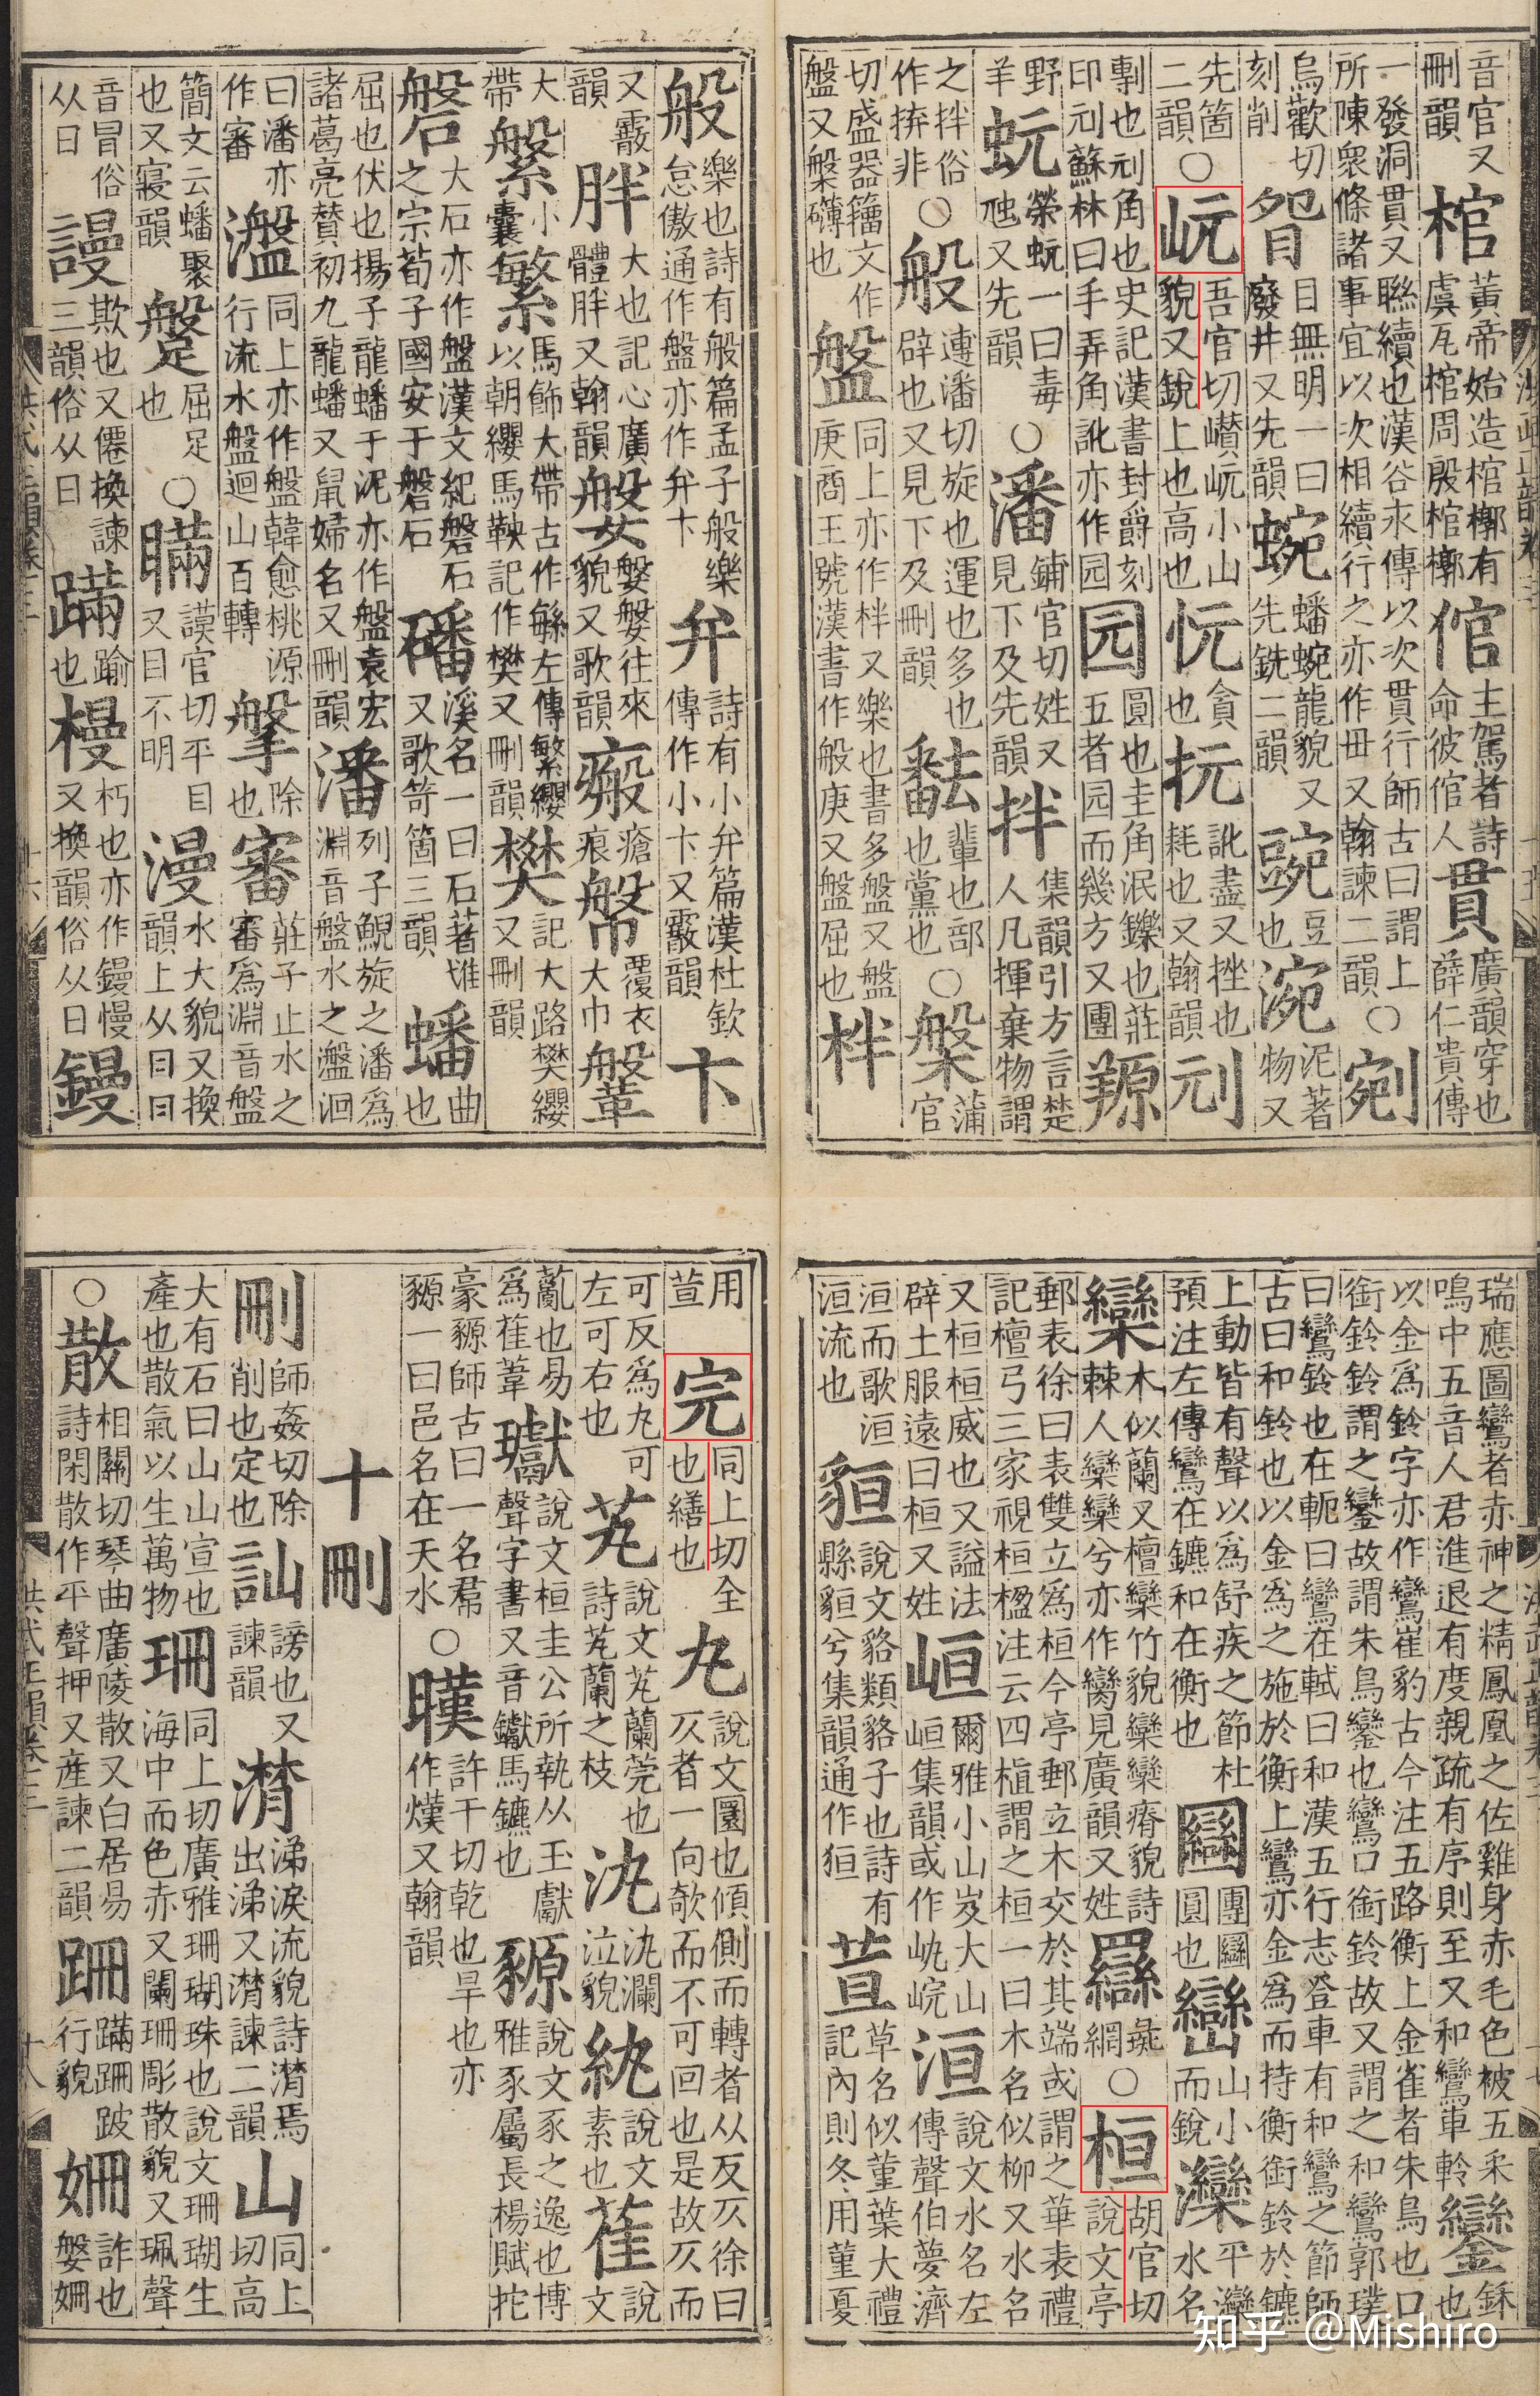 音官又刪韻棺黃帝始造棺槨有虞瓦棺周殷棺槨倌主駕者詩命彼倌人貫廣韻穿也薛仁貴傳
一發洞貫又聯續也漢谷永傳以次貫行師古曰謂上所陳衆條諸事宜以次相續行之亦作毌又翰諫二韻○剜
烏歡切刻削眢目無明一曰廢井又先韻蜿蟠蜿龍貌又先銑二韻豌豆也涴泥著物又
先箇二韻○岏吾官切巑岏小山貌又銳上也高也忨貪也抏訛盡又挫也耗也又翰韻刓
剸也刓角也史記漢書封爵刻印刓蘇林曰手弄角訛亦作园园圓也圭角泯鑠也莊五者园而幾方又團羱
野羊蚖蠑蚖一曰毒虺又先韻○潘鋪官切姓又見下及先韻拌集韻引方言楚人凡揮棄物謂
之拌俗作拚非○般連潘切旋也運也多也辟也又見下及刪韻輩也部也黨也○槃蒲官
切盛器籀文作盤又槃礴也盤同上亦作柈又樂也書多盤又盤庚商王號漢書作般庚又盤屈也柈
般樂也詩有般篇孟子般樂怠傲通作盤亦作弁卞弁詩有小弁篇漢杜欽傳作小卞又霰韻卞
又霰韻胖大也記心廣體胖又翰韻媻媻媻往來貌又歌韻瘢瘡痕幋覆衣大巾鞶
大帶縏小囊繁馬飾大帶古作緐左傳繁纓以朝纓馬鞅記作樊又刪韻樊記大路樊纓又刪韻
磐大石亦作盤漢文紀磐石之宗荀子國安于磐石磻溪名一曰石著堆又歌箇三韻蟠曲也
屈也伏也揚子龍蟠于泥亦作盤袁宏諸葛亮贊初九龍蟠又鼠婦名又刪韻潘列子鯢旋之潘爲淵音盤水之瀊洄
曰潘亦作審瀊同上亦作盤韓愈桃源行流水盤迴山百轉搫除也審莊子止水之審爲淵音盤
簡文云蟠聚也又寢韻屈足也○瞞謨官切平目又目不明漫水大貌又換韻上从曰
音冒俗从日謾欺也又僊換諫三韻俗从曰蹣踰也槾杇也亦作鏝慢又換韻俗从日鏝
瑞應圖鸞者赤神之精鳳凰之佐雞身赤毛色被五采鳴中五音人君進退有度親疏有序則至又和鸞車軨鑾鉌也
以金爲鈴字亦作鸞崔豹古今注五路衡上金雀者朱鳥也口銜鈴鈴謂之鑾故謂朱鳥鑾也鸞口銜鈴故又謂之和鸞郭璞
曰鸞鈴也在軛曰鸞在軾曰和漢五行志登車有和鸞之節師古曰和鈴也以金爲之施於衡上鸞亦金爲而持衡銜鈴於鑣
上動皆有聲以爲舒疾之節杜預注左傳鸞在鑣和在衡也圞團圞圓也巒山小而銳灤平灤水名
欒木似蘭又檀欒竹貌欒欒瘠貌詩棘人欒欒兮亦作臠見廣韻又姓彘網○桓胡官切說文亭
郵表徐曰表雙立爲桓今亭郵立木交於其端或謂之華表禮記檀弓三家視桓楹注云四植謂之桓一曰木名似柳又水名
又桓桓威也又謚法辟土服遠曰桓又姓峘爾雅小山岌大山峘集韻或作岏峘洹說文水名左傳聲伯夢濟
洹而歌洹洹流也貆說文貉類貉子也詩有縣貆兮集韻通作狟荁草名似菫葉大禮記內則冬用菫夏
用荁完同上切全也繕也丸說文圜也傾側而轉者从反仄徐曰仄者一向欹而不可回也是故仄而
可反爲丸可左可右也芄說文芄蘭莞也詩芄蘭之枝汍汍瀾泣貌紈說文素也萑說文
薍也易爲萑葦瓛說文桓圭公所執从玉獻聲字書又音钀馬鑣也豲說文豕之逸也博雅豕屬長楊賦拕
豪豲師古曰一名帬豲一曰邑名在天水○暵許干切乾也旱也亦作熯又翰韻
十刪
刪師姦切除削也定也訕謗也又諫韻潸涕淚流貌詩潸焉出涕又潸諫二韻山同上切高
大有石曰山山宣也產也散氣以生萬物珊同上切廣雅珊瑚珠也說文珊瑚生海中而色赤又闌珊彫散貌又珮聲
○散相關切琴曲廣陵散又白居易詩閑散作平聲押又産諫二韻跚蹣跚跛行貌姍詐也媻姍
知乎 @Mishiro